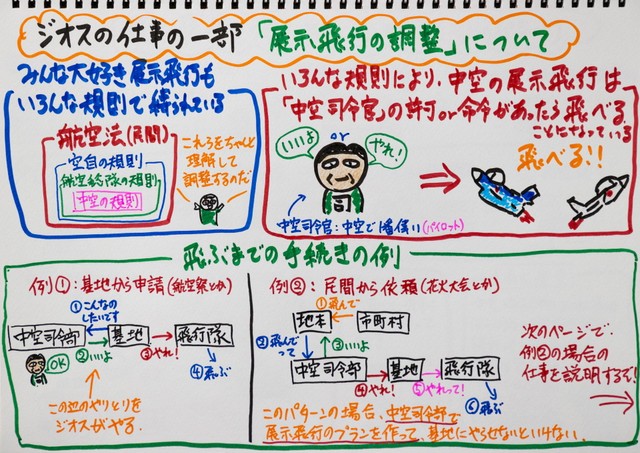 ジオスの仕事の一部「展示飛行の調整」について
みんな大好き展示飛行も
いろんな規則で縛られている
航空法(民間)
空自の規則
航空総隊の規則
中空の規則
これらをちゃんと
理解して
調整するのだ
いろんな規則により、中空の展示飛行は
「中空司令官」の許可or命令があったら飛べる
ことになっている
いいよ
or
やれ!
司
飛べる!!
中空司令官:中空で1番偉い(パイロット)
飛ぶまでの手続きの例
例①:基地から申請(航空祭とか)
①こんなの
したいです
中空司令部
基地
飛行隊
OK
②いいよ
③やれ!
④飛ぶ
この辺のやりとりを
ジオスがやる。
例②:民間から依頼(花火大会とか)
①飛んで
地本
市町村
②飛んで
だって
③いいよ
中空司令部
基地
飛行隊
④やれ!
⑤やれって!
⑥飛ぶ
このパターンの場合、中空司令部で
展示飛行のプランを作って、基地にやらせないといけない。
次のページで
例②の場合の
仕事を説明するぞ!